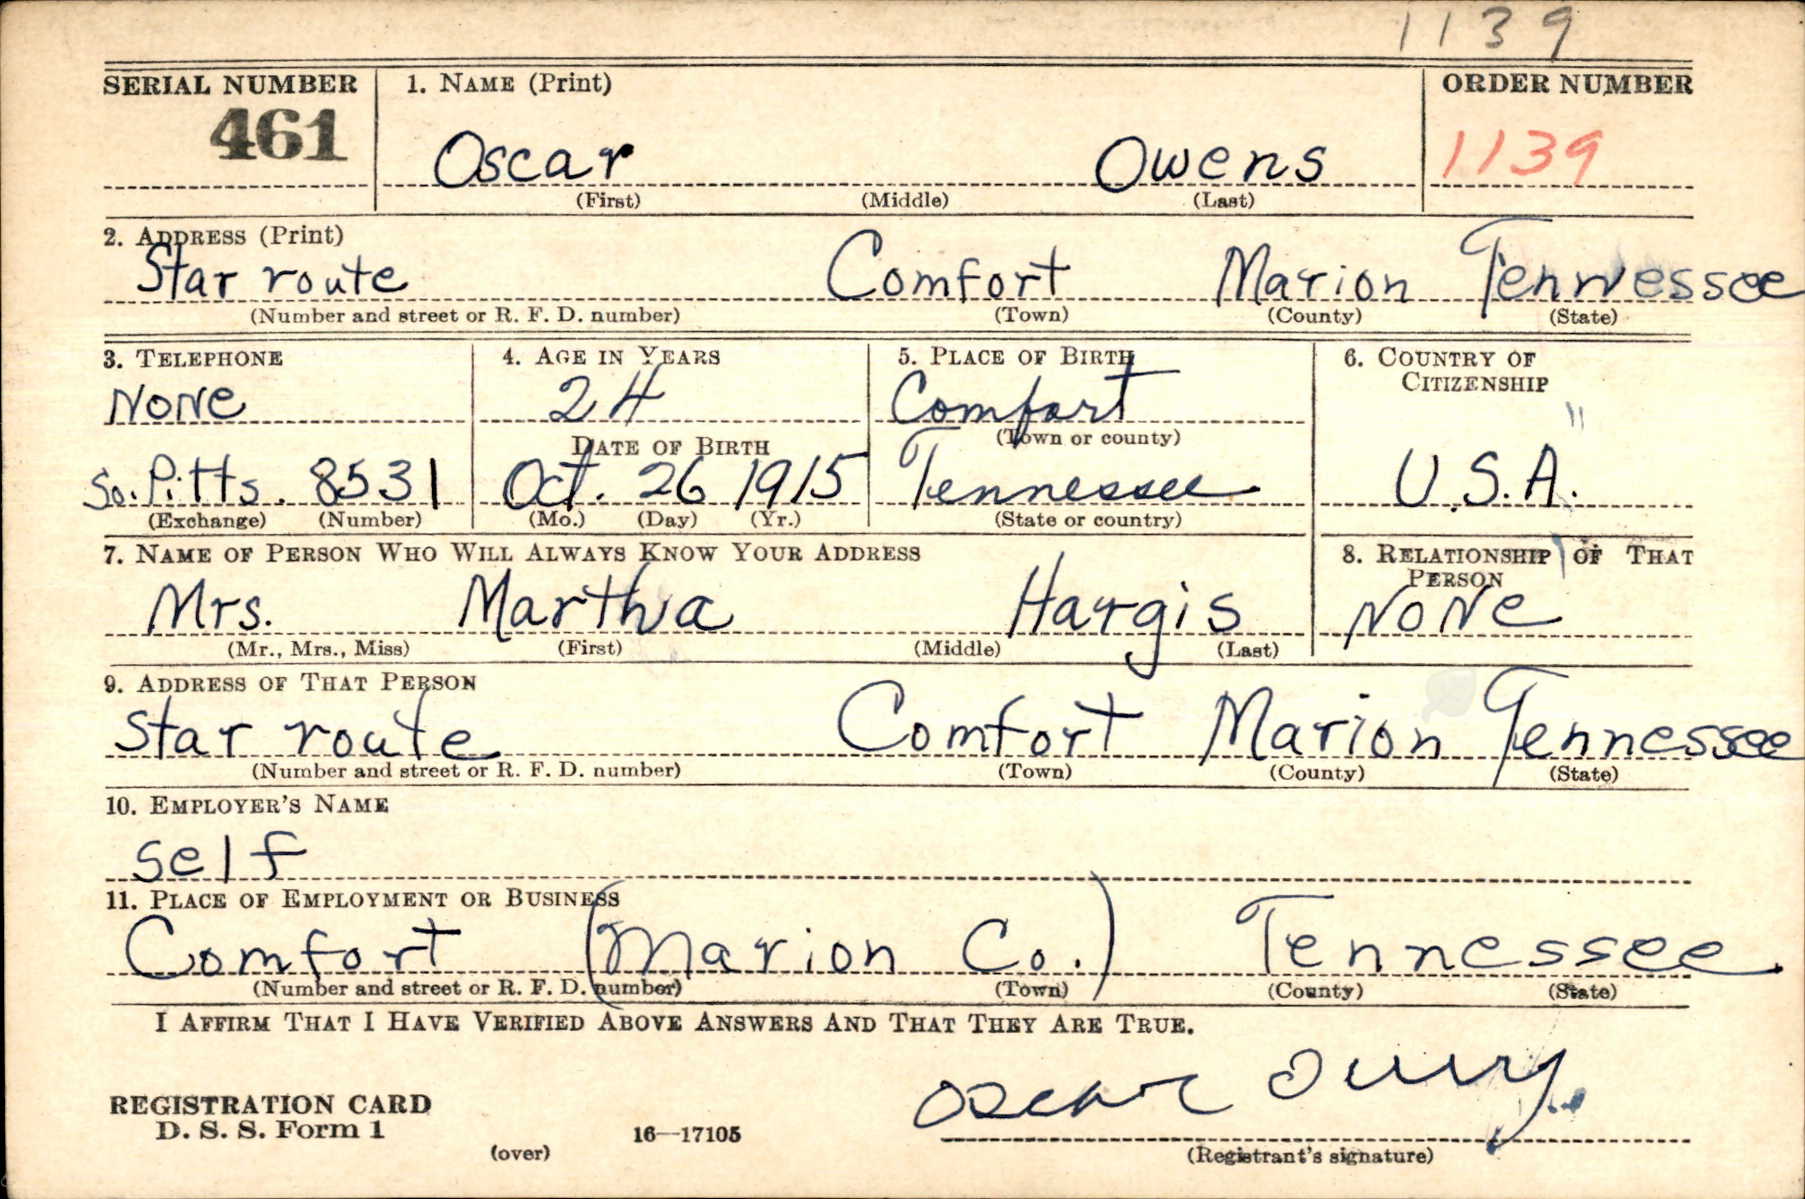 1139
SERIAL NUMBER
461
1. NAME (Print)
Oscar Owens
(First) (Middle) (Last)
ORDER NUMBER
1139
2. ADDRESS (Print)
Star route Comfort Marion Tennessee
(Number and street or R. F. D. number) (Town) (County) (State)
3. TELEPHONE
None
So. Pitts. 8531
(Exchange) (Number)
4. AGE IN YEARS
24
DATE OF BIRTH
Oct. 26 1915
(Mo.) (Day) (Yr.)
5. PLACE OF BIRTH
Comfort
(Town or county)
Tennessee
(State or country)
6. COUNTRY OF
CITIZENSHIP
U.S.A.
7. NAME OF PERSON WHO WILL ALWAYS KNOW YOUR ADDRESS
Mrs. Martha Hargis
(Mr., Mrs., Miss) (First) (Middle) (Last)
8. RELATIONSHIP OF THAT
PERSON
None
9. ADDRESS OF THAT PERSON
Star route Comfort Marion Tennessee
(Number and street or R. F. D. number) (Town) (County) (State)
10. EMPLOYER'S NAME
Self
11. PLACE OF EMPLOYMENT OR BUSINESS
Comfort (Marion Co.) Tennessee
(Number and street or R. F. D. number) (Town) (County) (State)
I AFFIRM THAT I HAVE VERIFIED ABOVE ANSWERS AND THAT THEY ARE TRUE.
Oscar
REGISTRATION CARD
D. S. S. Form 1
(over)
16—17105
(Registrant's signature)